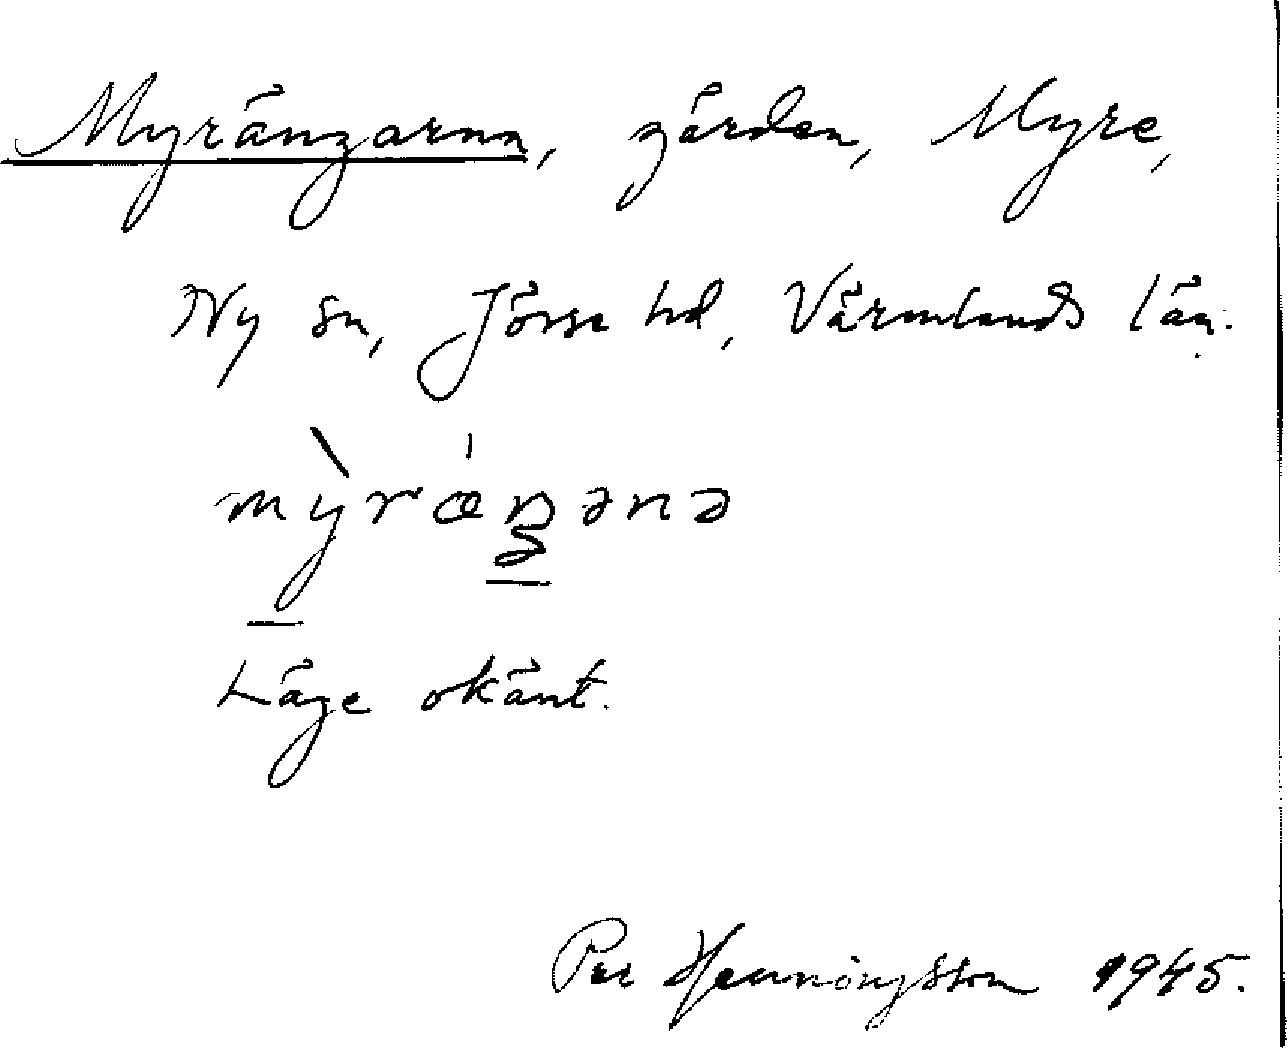 Myrängarna, gärden, Myre,
Ny sn, Jösse hd, Värmlands län.
mỳrǽŋənə
Läge okänt.
Per Henningsson 1945.